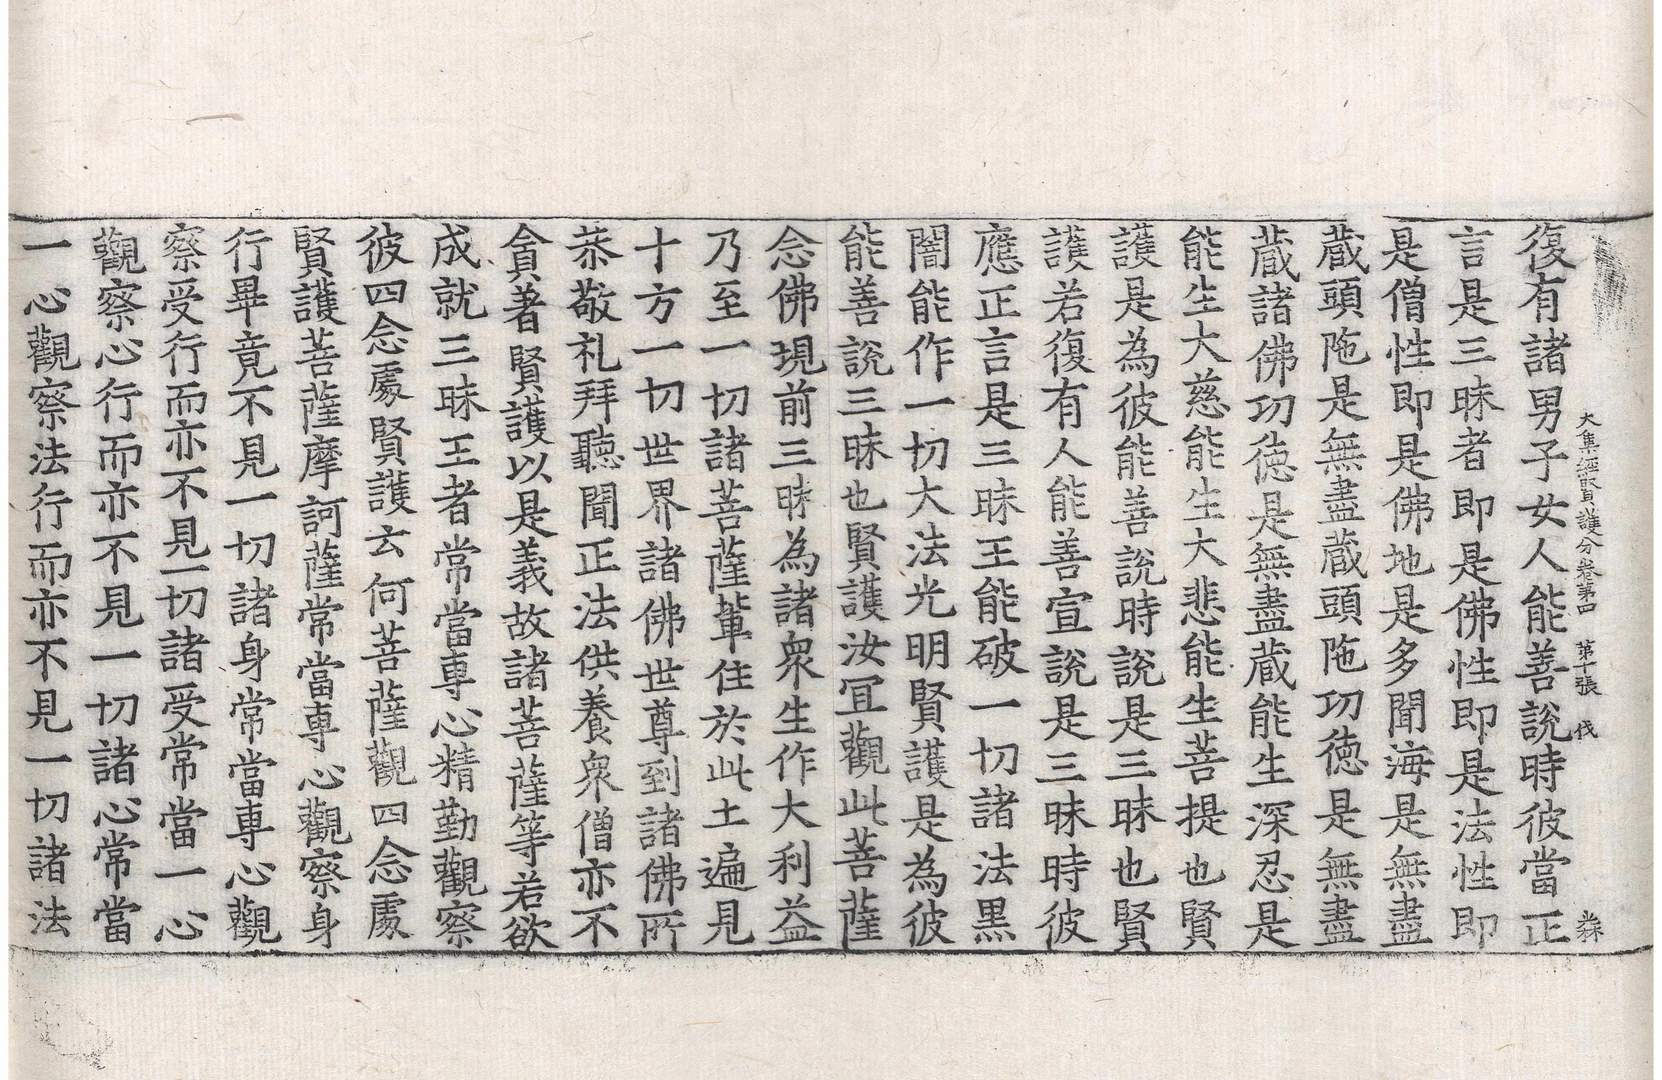 大集經賢護分卷第四　第十張　伐
復有諸男子女人能善說時彼當正
言是三昧者即是佛性即是法性即
是僧性即是佛地是多聞海是無盡
蔵頭陁是無盡蔵頭陁功徳是無盡
蔵諸佛功徳是無盡蔵能生深忍是
能生大慈能生大悲能生菩提也賢
護是為彼能善說時說是三昧也賢
護若復有人能善宣說是三昧時彼
應正言是三昧王能破一切諸法黒
闇能作一切大法光明賢護是為彼
能善說三昧也賢護汝冝觀此菩薩
念佛現前三昧為諸衆生作大利益
乃至一切諸菩薩輩住於此土遍見
十方一切世界諸佛世尊到諸佛所
恭敬礼拜聽聞正法供養衆僧亦不
貪著賢護以是義故諸菩薩等若欲
成就三昧王者常當專心精勤觀察
彼四念處賢護云何菩薩觀四念處
賢護菩薩摩訶薩常當専心觀察身
行畢竟不見一切諸身常當専心觀
察受行而亦不見一切諸受常當一心
觀察心行而亦不見一切諸心常當
一心觀察法行而亦不見一切諸法